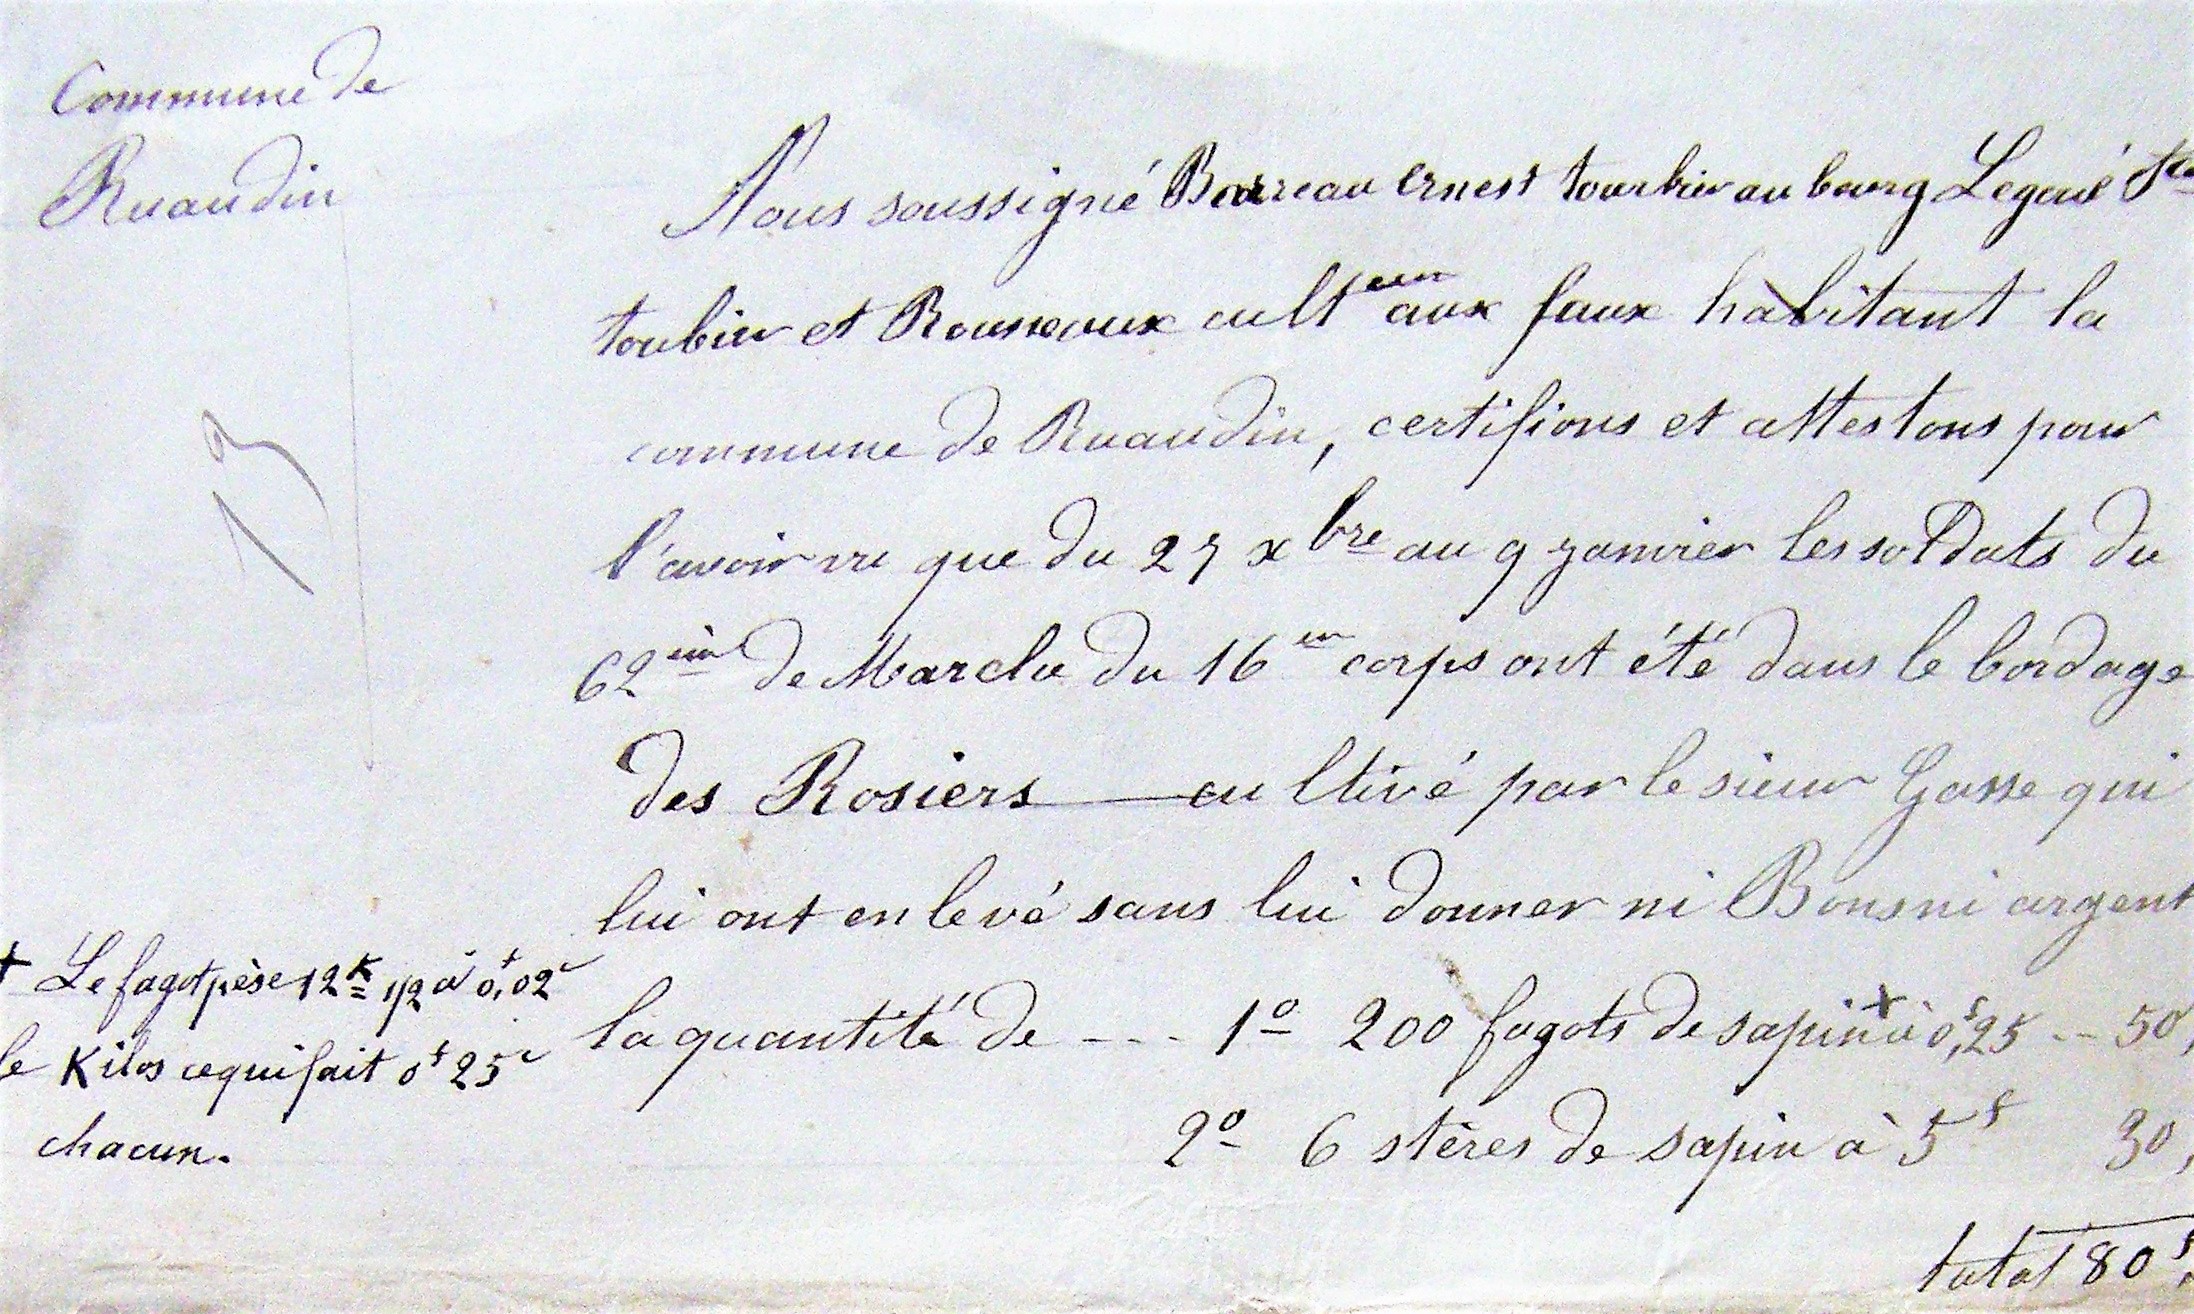 Commune de
Ruaudin
13
Nous soussigné Barreau Ernest tourbier au bourg Legoué
toubier et Rousseaux cult eur aux faux habitant la
commune de Ruaudin, certifions et attestons pour
l'avoir vu que du 27 xbre au 9 janvier les soldats du
62 eim de Marche du 16 em corps ont été dans le bordage
des Rosiers — cultivé par le sieur Gasse qui
lui ont enlevé sans lui donner ni Bons ni argent
la quantité de --- 1º 200 fagots de sapin + à 0,f25 -- 50,
2º 6 stères de sapin à 5f 30,
total 80f.
+ Le fagot pèse 12k 1/2 à 0,f02c
le Kilos ce qui fait 0f 25c
chacun.